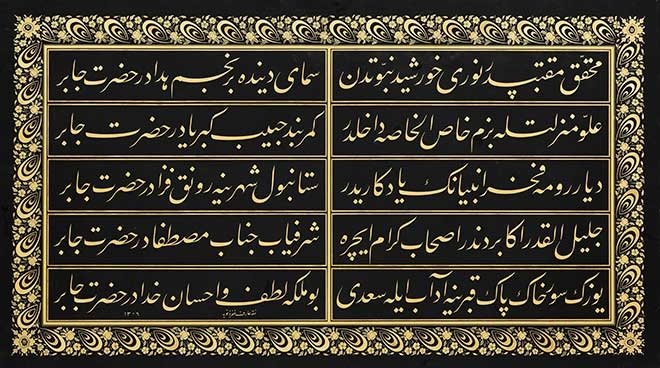 محقق مقتبسدر نوری خورشید نبوتدن
سمای دینده بر نجم هدادر حضرت جابر
علوّ منزلتله بزم خاص الخاصه داخلدر
کمربند حبیب کبریادر حضرت جابر
دیار رومه فخر انبیانک یادکاریدر
ستانبول شهرینه رونق فزادر حضرت جابر
جلیل القدر اکابردندر اصحاب کرام ایچره
شرفیاب جناب مصطفادر حضرت جابر
یوزک سور خاک پاک قبرینه آداب ایله سعدی
بو ملکه لطف و احسان خدادر حضرت جابر
١٣٠٦